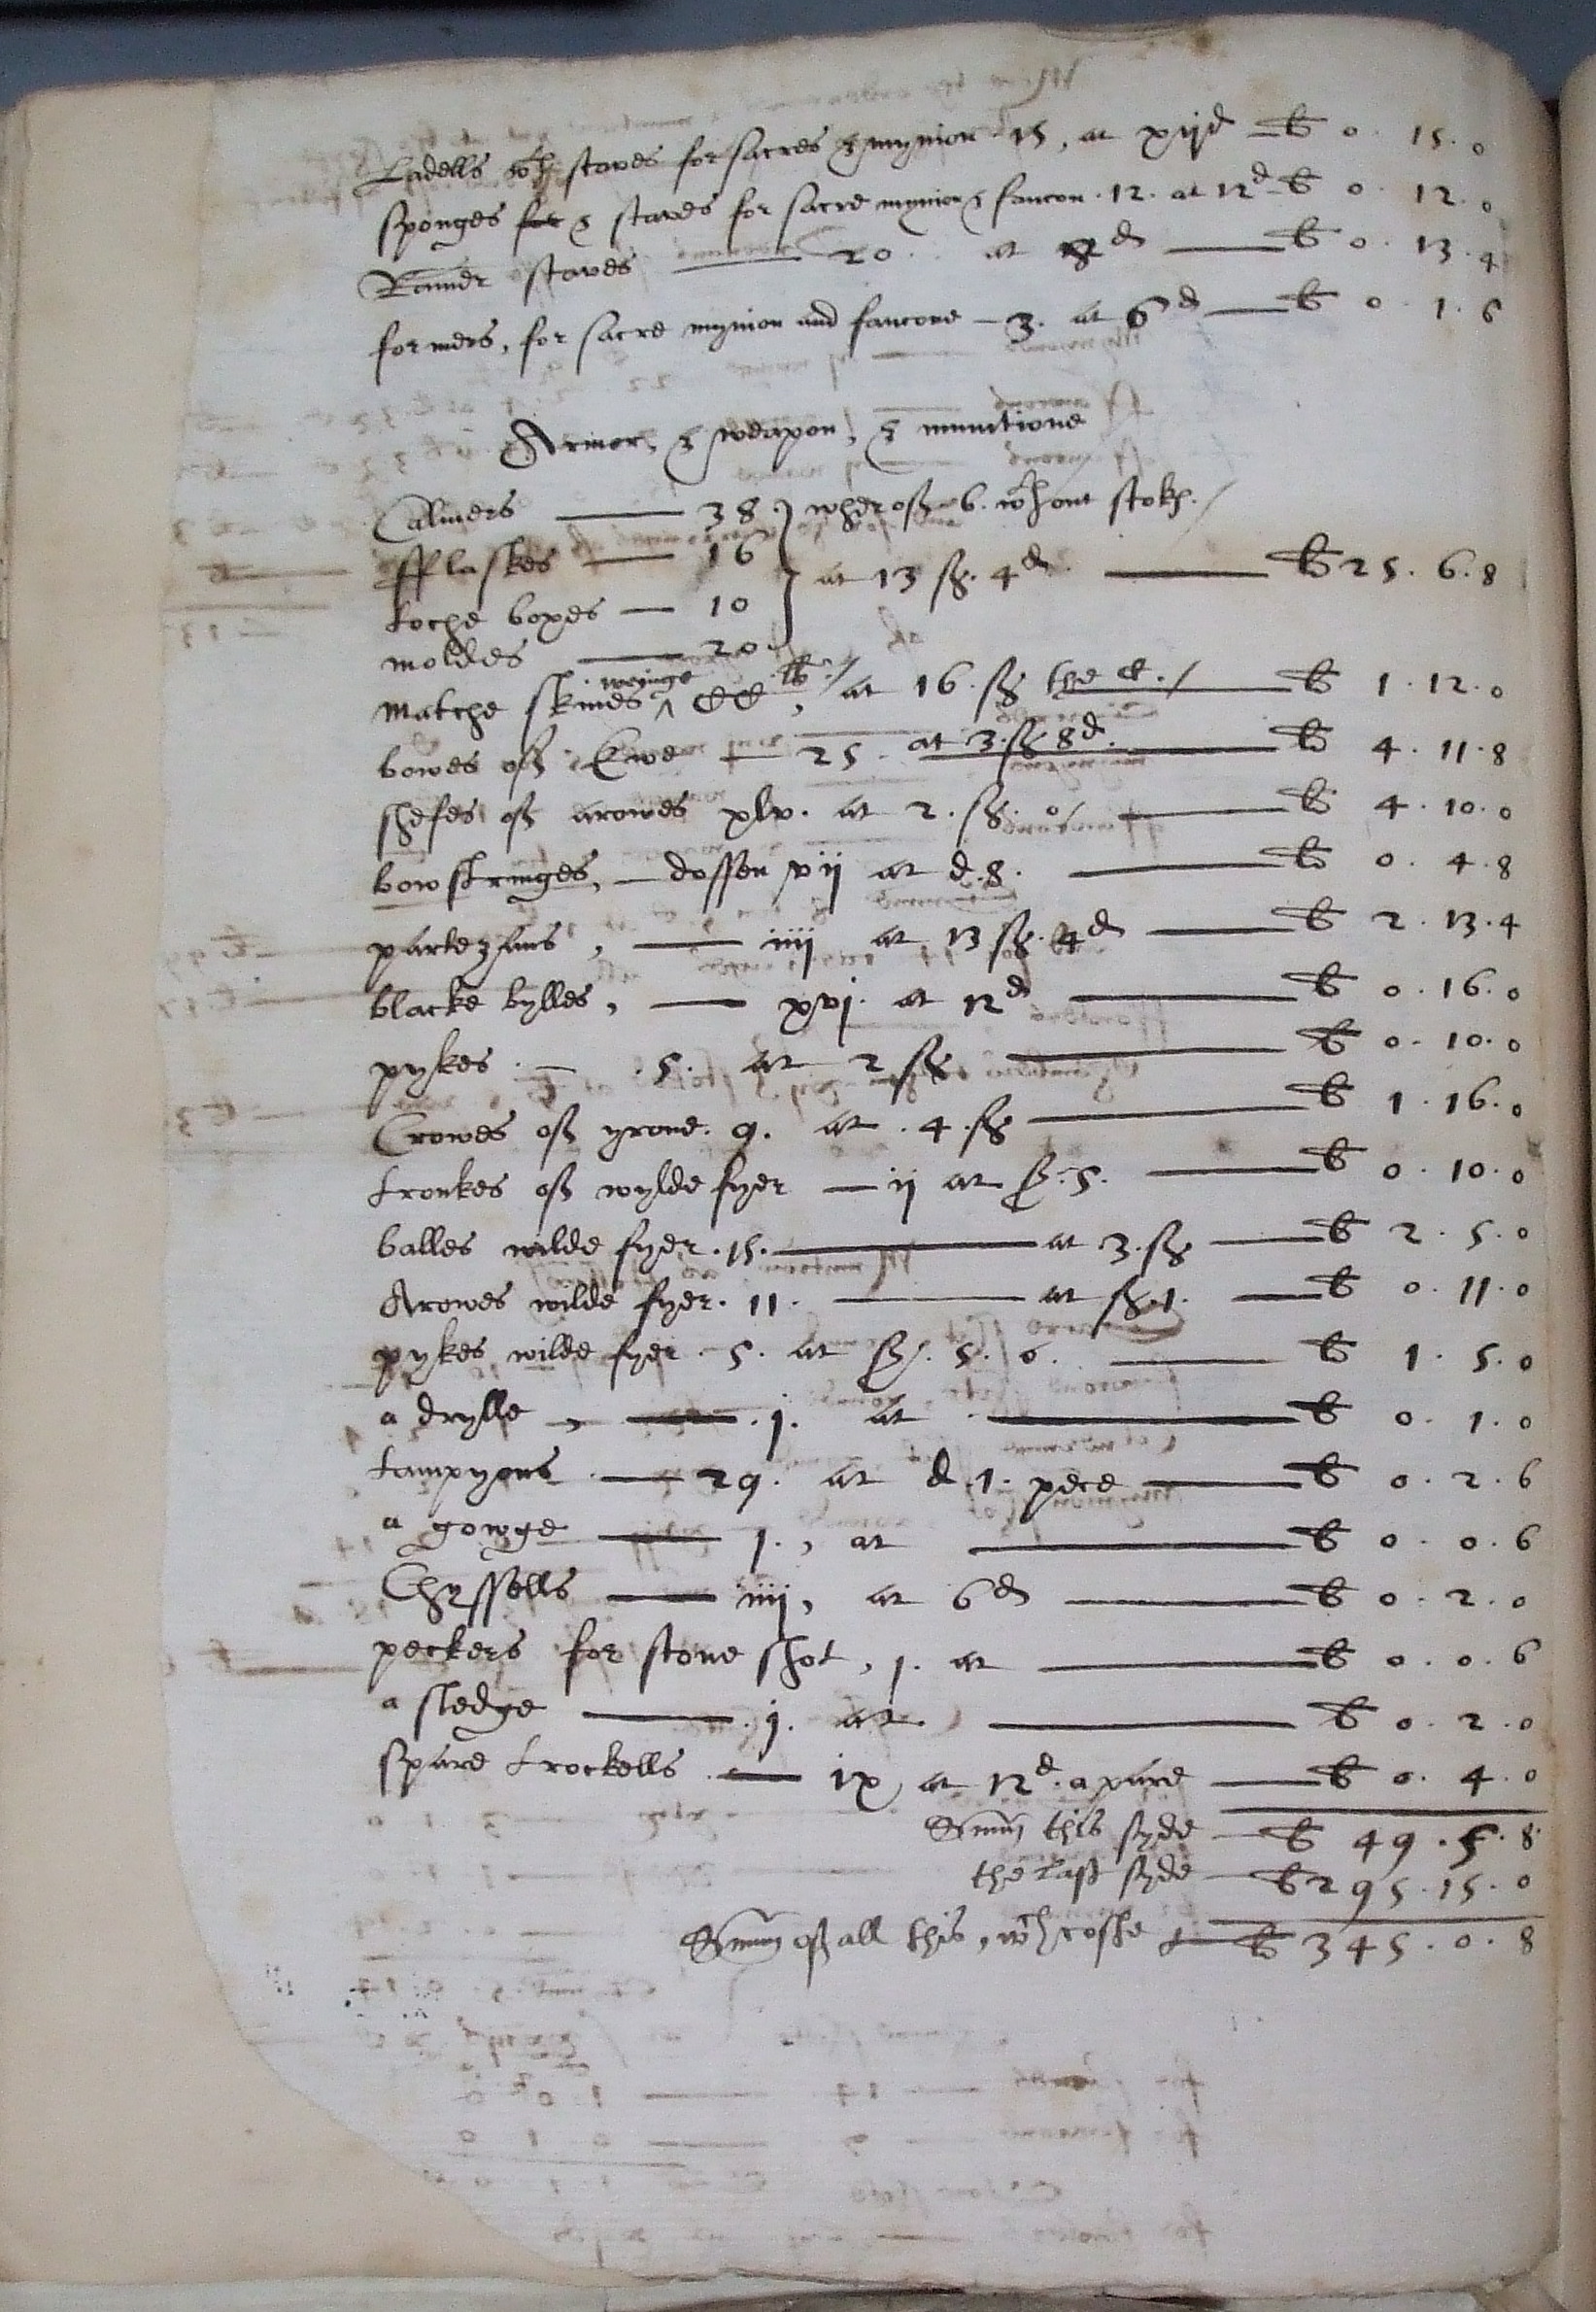 Ladells wth staves for sacres & mynion 15, at xijd — li 0 . 15 . 0
sponges for & staves for sacre mynion & faucon . 12 . at 12d — li 0 . 12 . 0
Rammer staves — 20 . at 8d — li 0 . 13 . 4
formers, for sacre mynion and faucone — 3 . at 6d — li 0 . 1 . 6
Armor, & weapon, & munitione
Calivers — 38 . } wherof 6 . wthout stoks . /
fflaskes — 16
toche boxes — 10 } at 13 s . 4d . — li 25 . 6 . 8
moldes — 20 .
matche skines ^ weinge CC li . / , at 16 . s the C . / — li 1 . 12 . 0
bowes of Ewe — 25 . at 3 . s 8d . — li 4 . 11 . 8
shefes of arowes xlv . at 2 . s . 0 — li 4 . 10 . 0
bowstringes, — dossen vij at d . 8 . — li 0 . 4 . 8
partezans , — iiij at 13 s . 4d — li 2 . 13 . 4
blacke bylles , — xvj . at 12d — li 0 . 16 . 0
pykes . — . 5 . at 2 s — li 0 . 10 . 0
Crowes of yrone . 9 . at . 4 . s — li 1 . 16 . 0
tronkes of wylde fyer — ij at s . 5 . — li 0 . 10 . 0
balles wilde fyer . 15 . — at 3 . s — li 2 . 5 . 0
Arowes wilde fyer . 11 . — at s . 1 . — li 0 . 11 . 0
pykes wilde fyer . 5 . at s . 5 . 0 . — li 1 . 5 . 0
a drylle , — . j . at . — li 0 . 1 . 0
tampyons — 29 . at d 1 . pece — li 0 . 2 . 6
a gowge — 1 . , at — li 0 . 0 . 6
Chyssells — iiij , at 6d — li 0 . 2 . 0
peckers for stone shot , 1 . at — li 0 . 0 . 6
a sledge — . j . at . — li 0 . 2 . 0
spare trockells . — ix , at 12d . a pare — li 0 . 4 . 0
Summ this syde — li 49 . 5 . 8
the last syde — li 295 . 15 . 0
Summ of all this, wth coste — li 345 . 0 . 8